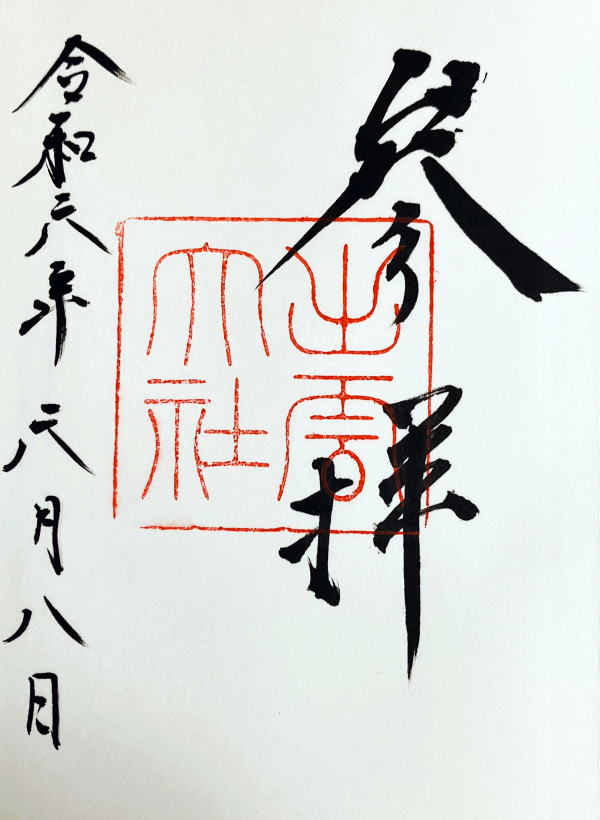 參拜
出雲
大社
令和六年六月八日